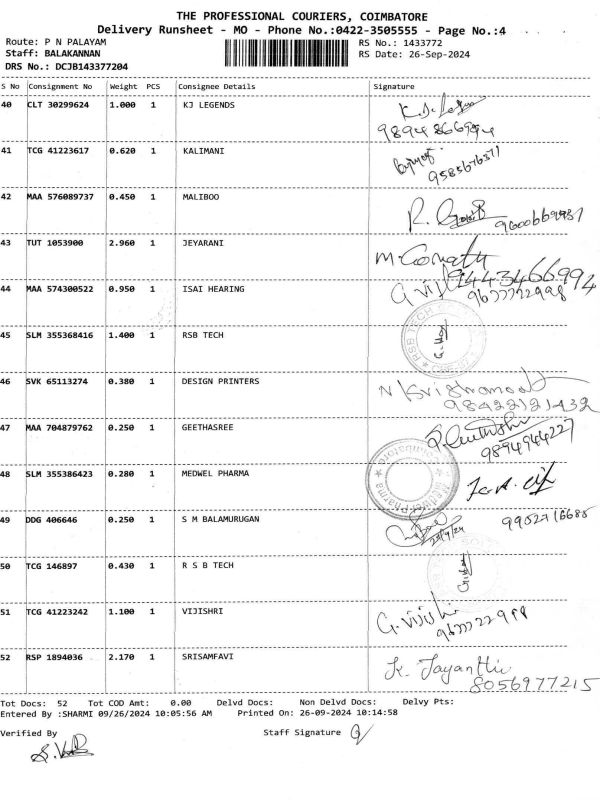 THE PROFESSIONAL COURIERS, COIMBATORE
Delivery Runsheet - MO - Phone No.:0422-3505555 - Page No.:4
Route: P N PALAYAM RS No.: 1433772
Staff: BALAKANNAN RS Date: 26-Sep-2024
DRS No.: DCJB143377204
S No Consignment No Weight PCS Consignee Details Signature
40 CLT 30299624 1.000 1 KJ LEGENDS
41 TCG 41223617 0.620 1 KALIMANI
9585676371
42 MAA 576089737 0.450 1 MALIBOO
R.
43 TUT 1053900 2.960 1 JEYARANI
M. Gomathy
9443466994
44 MAA 574300522 0.950 1 ISAI HEARING
G. Viji
9677722998
45 SLM 355368416 1.400 1 RSB TECH
RSB TECH
46 SVK 65113274 0.380 1 DESIGN PRINTERS
N Krishnamoo
98422121432
47 MAA 704879762 0.250 1 GEETHASREE
9894944227
48 SLM 355386423 0.280 1 MEDWEL PHARMA
Medwel Pharma
49 DDG 406646 0.250 1 S M BALAMURUGAN
9952716685
50 TCG 146897 0.430 1 R S B TECH
51 TCG 41223242 1.100 1 VIJISHRI
G. Vijishri
9677722998
52 RSP 1894036 2.170 1 SRISAMFAVI
K. Jayanthi
8056977215
Tot Docs: 52 Tot COD Amt: 0.00 Delvd Docs: Non Delvd Docs: Delvy Pts:
Entered By :SHARMI 09/26/2024 10:05:56 AM Printed On: 26-09-2024 10:14:58
Verified By Staff Signature